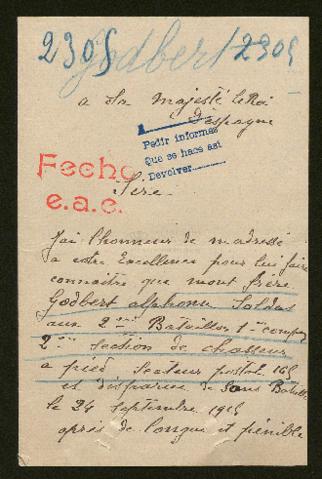 2305 Godbert 2305
a Sa Majesté le Roi
d'espagne
Pedir informes
Que se hace así
Devolver
Fecho
e.a.e.
Sire
J'ai l'honneur de m'adressé
a votre Excellence pour lui faire
connaitre que mont frère
Godbert alphonse Soldas
aux 2ème Bataillon 1ère compag
2ème Section de chasseur
a pied Secteur postal 165
et disparue de Sans Bataill
le 24 Septembre 1915
après de longue et pénible